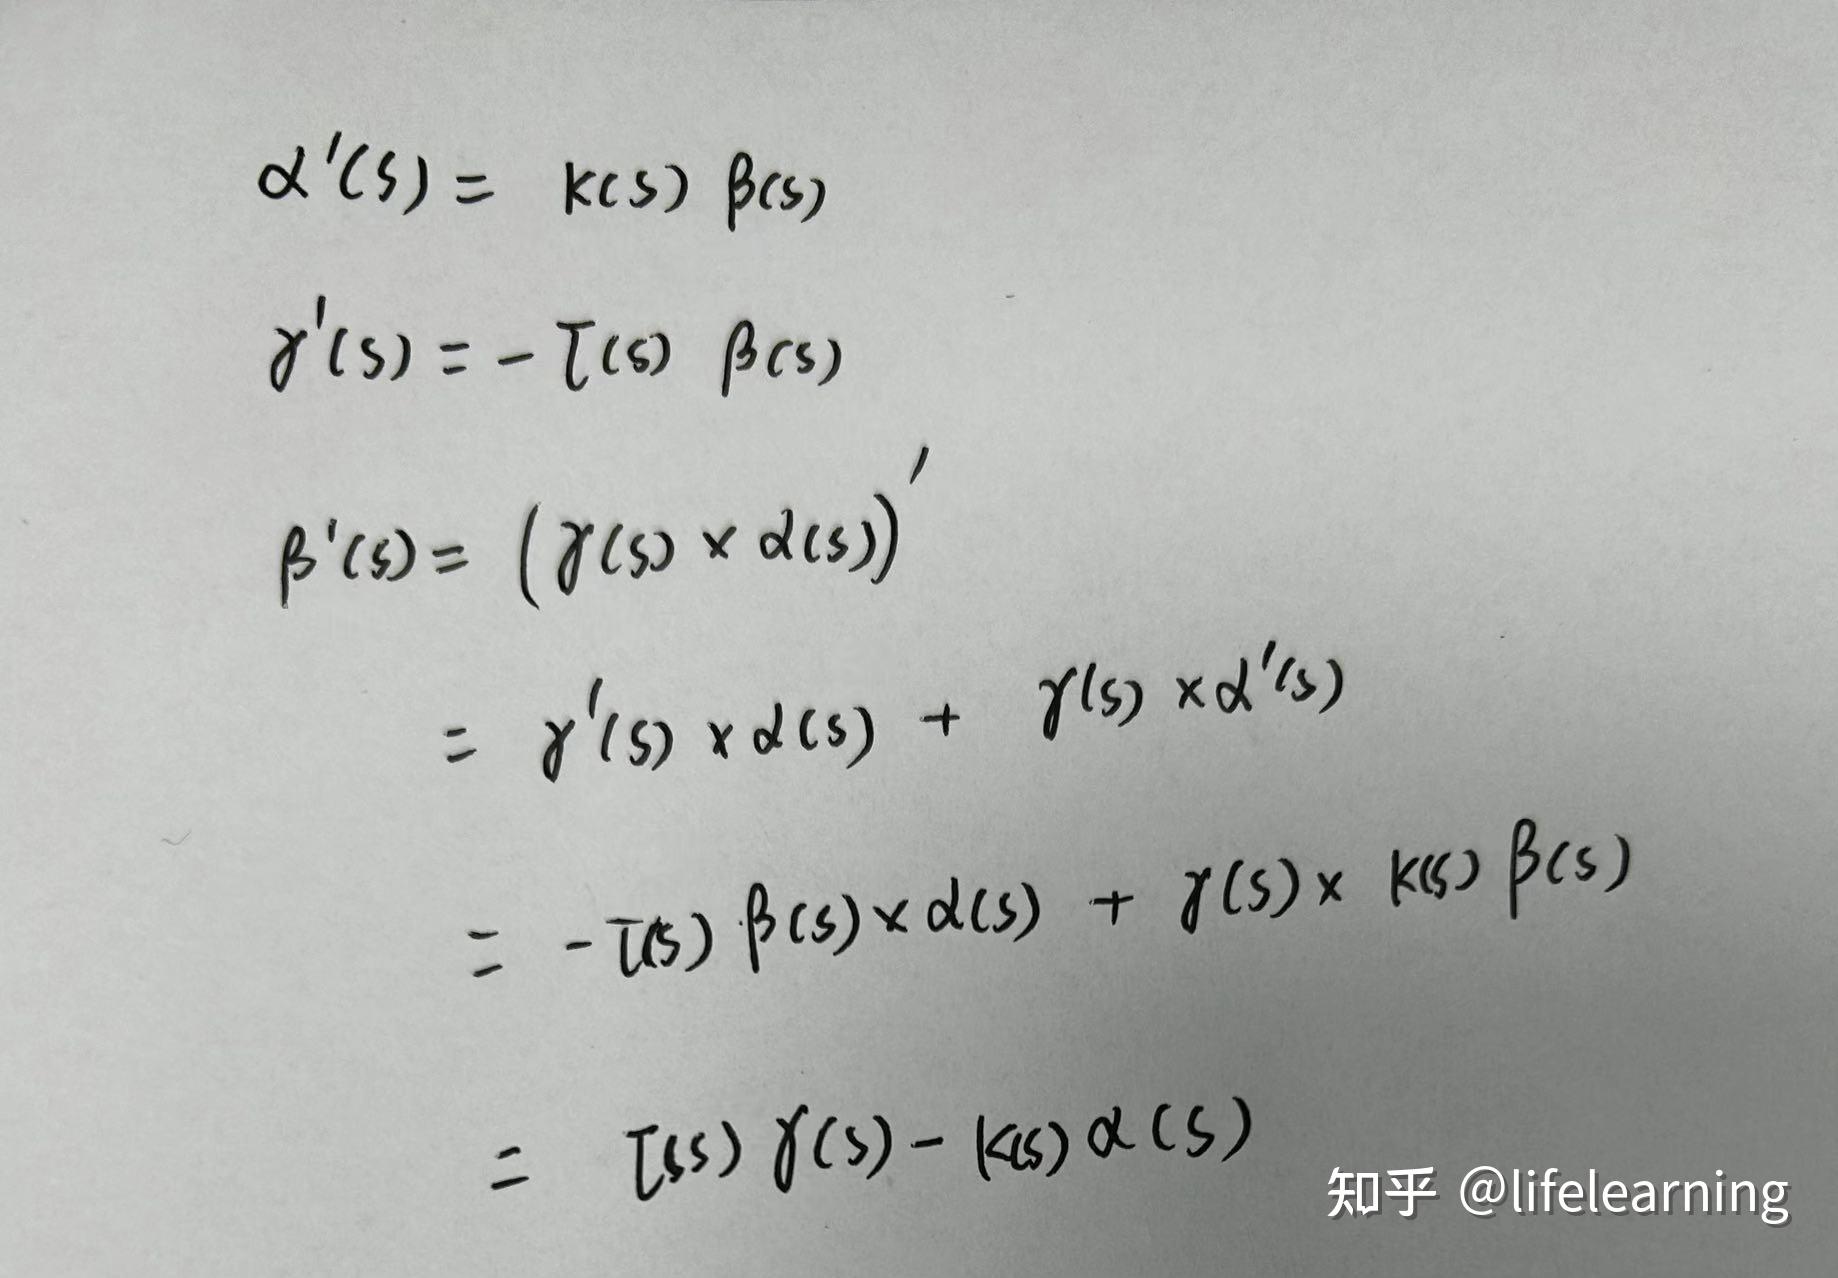 α'(s) = κ(s) β(s)
γ'(s) = - τ(s) β(s)
β'(s) = (γ(s) × α(s))'
= γ'(s) × α(s) + γ(s) × α'(s)
= - τ(s) β(s) × α(s) + γ(s) × κ(s) β(s)
= τ(s) γ(s) - κ(s) α(s)
知乎 @lifelearning